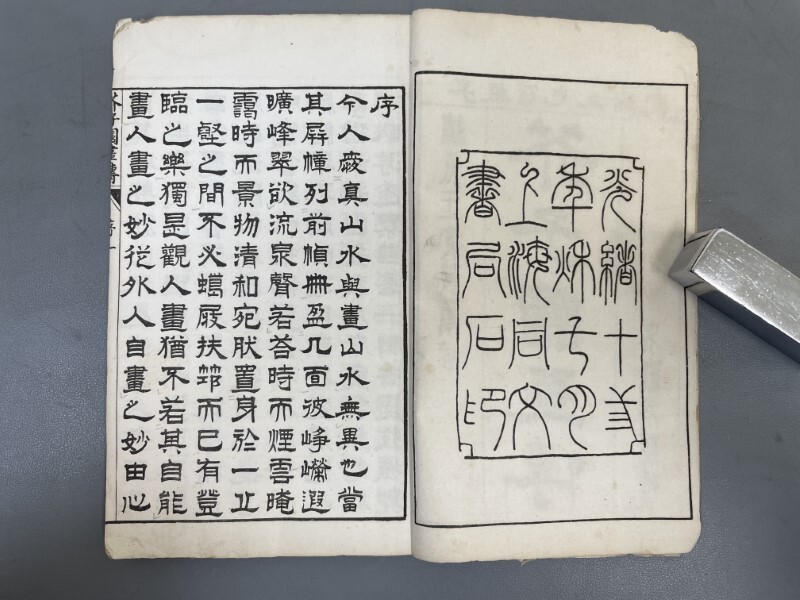 光緒十
年秋月
上海同文
書局石印
序
今人愛真山水與畫山水無異也當
其屏幛列前幀冊盈几面彼崢嶸遐
曠峰翠欲流泉聲若答時而煙雲晻
靄時而景物清和宛然置身於一丘
一壑之間不必蠟屐扶筇而已有登
臨之樂獨是觀人畫猶不若其自能
畫人畫之妙從外入自畫之妙由心
芥子園畫傳